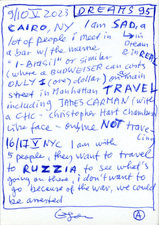 9/10 V 2023 DREAMS 95
CAIRO, NY I am SAD, a
lot of people i meet in
a bar w/ the name
1-BRASIL or similar
in Dream
& in REAL
(when a BUDWEISER can costs
ONLY 1 (one) dollar) on main
street in Manhattan TRAVEL
including JAMES CARMAN (with
a CHC - Christopher Hart Chambers
like face - online NOT traveling
16/17 V NYC I am with
5 people, they want to travel
to RUZZIA to see what's
going on there, i don't want to
go because of the war, we could
be arrested
A